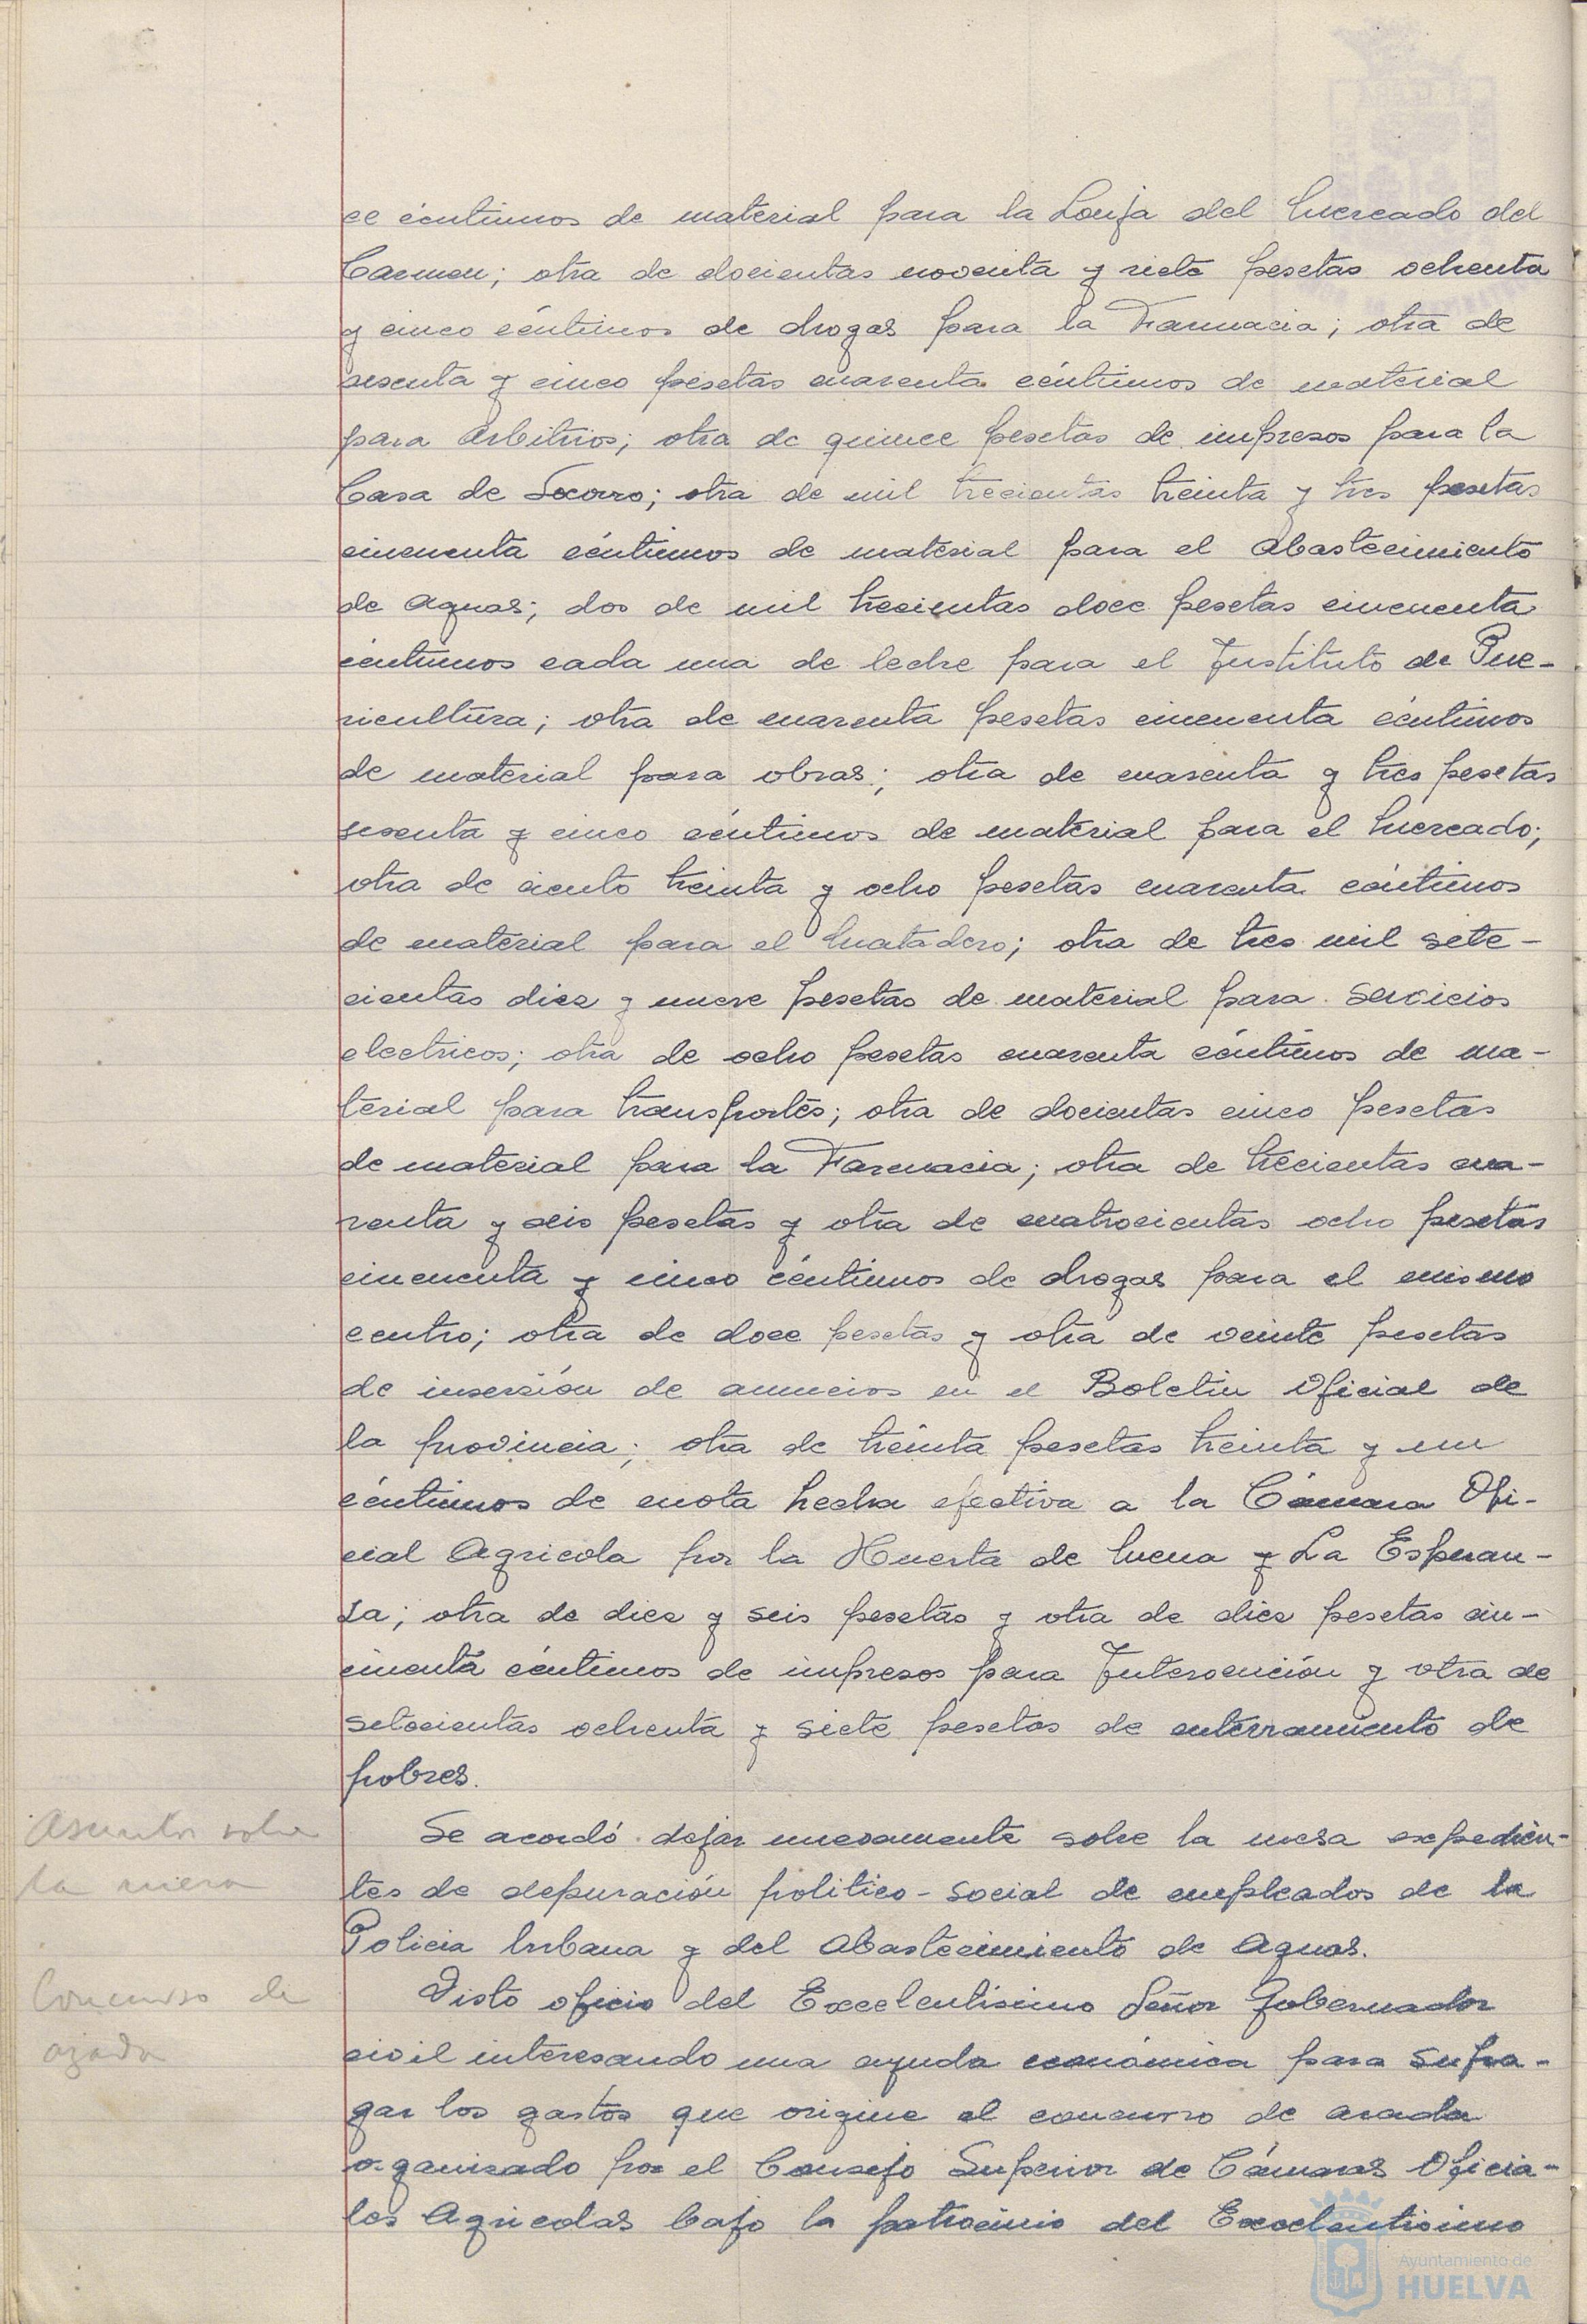 ce céntimos de material para la Lonja del Mercado del
Carmen; otra de docientas noventa y siete pesetas ochenta
y cinco céntimos de drogas para la Farmacia; otra de
sesenta y cinco pesetas cuarenta céntimos de material
para Arbitrios; otra de quince pesetas de impresos para la
Casa de Socorro; otra de mil trecientas treinta y tres pesetas
cincuenta céntimos de material para el Abastecimiento
de Aguas; dos de mil trecientas doce pesetas cincuenta
céntimos cada una de leche para el Instituto de Pue-
ricultura; otra de cuarenta pesetas cincuenta céntimos
de material para obras; otra de cuarenta y tres pesetas
sesenta y cinco céntimos de material para el Mercado;
otra de ciento treinta y ocho pesetas cuarenta céntimos
de material para el Matadero; otra de tres mil sete-
cientas diez y nueve pesetas de material para servicios
electricos; otra de ocho pesetas cuarenta céntimos de ma-
terial para transportes; otra de docientas cinco pesetas
de material para la Farmacia; otra de trecientas cua-
renta y seis pesetas y otra de cuatrocientas ocho pesetas
cincuenta y cinco céntimos de drogas para el mismo
centro; otra de doce pesetas y otra de veinte pesetas
de inserción de anuncios en el Boletin Oficial de
la provincia; otra de treinta pesetas treinta y un
céntimos de cuota hecha efectiva a la Cámara Ofi-
cial Agricola por la Huerta de Mena y La Esperan-
za; otra de diez y seis pesetas y otra de diez pesetas cin-
cuenta céntimos de impresos para Intervención y otra de
setecientas ochenta y siete pesetas de enterramiento de
pobres.
Asuntos sobre
la mesa
Se acordó dejar nuevamente sobre la mesa expedien-
tes de depuración politico-social de empleados de la
Policia Urbana y del Abastecimiento de Aguas.
Concurso de
azada
Visto oficio del Excelentisimo Señor Gobernador
civil interesando una ayuda económica para sufra-
gar los gastos que origine el concurso de azada
organizado por el Consejo Superior de Cámaras Oficia-
les Agricolas bajo la patrocinio del Excelentisimo
Ayuntamiento de
HUELVA